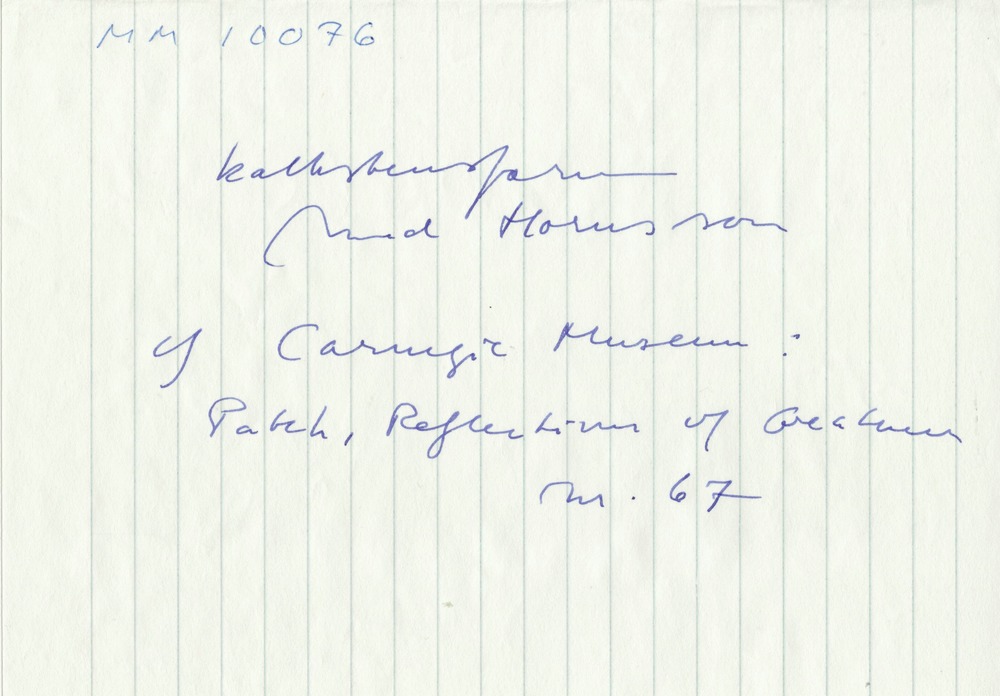 MM 10076
kalkstensform
med Horus son
cf Carnegie Museum:
Patch, Reflections of Greatness
nr. 67